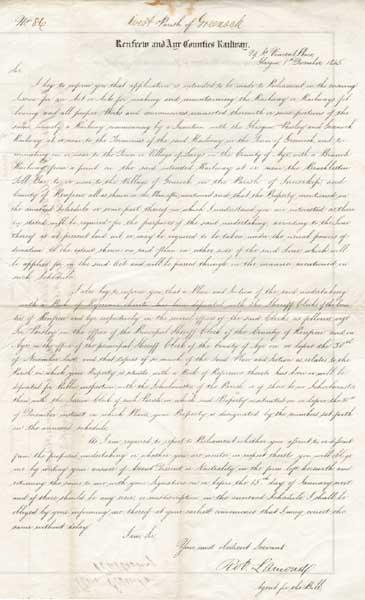 No. 86 West Parish of Greenock
Renfrew and Ayr Counties Railway.
St Vincent Place
Glasgow 1st December 1845
Sir
I beg to inform you that application is intended to be made to Parliament in the ensuing
Session for an Act or Acts for making and maintaining the Railway or Railways fol-
lowing and all proper Works and conveniences connected therewith or some portions of the
same, namely a Railway commencing by a Junction with the Glasgow Paisley and Greenock
Railway at or near to the Terminus of the said Railway in the Town of Greenock and ter-
minating in or near to the Town or Village of Largs in the County of Ayr with a Branch
Railway from a point on the said intended Railway at or near the
Toll Bar to or near to the Village of Gourock in the Parish of Innerkip and
County of Renfrew all as shewn on the Plan aftermentioned and that the Property mentioned in
the annexed Schedule or some part thereof in which I understand you are interested as there-
by stated, will be required for the purposes of the said undertaking according to the line
thereof as at present laid out or may be required to be taken under the usual powers of
deviation to the extent shewn on said Plan on either side of the said line which will
be applied for in the said Act and will be passed through in the manner mentioned in
such Schedule.
I also beg to inform you that a Plan and Section of the said undertaking
with a Book of Reference thereto has been deposited with the Sheriff Clerk of the Coun-
ties of Renfrew and Ayr respectively in the several offices of the said Clerks as follows viz:
In Paisley in the office of the Principal Sheriff Clerk of the County of Renfrew and in
Ayr in the office of the principal Sheriff Clerk of the County of Ayr on or before the 30th
of November last and that copies of so much of the said Plan and Section as relates to the
Parish in which your Property is situate with a Book of Reference thereto has been or will be
deposited for Public inspection with the Schoolmaster of the Parish or if there be no Schoolmaster
then with the Session Clerk of such Parish in which said Property is situated on or before the 31st
of December instant in which Plans your Property is designated by the numbers set forth
in the annexed schedule.
As I am required to report to Parliament whether you assent to or dissent
from the proposed undertaking or whether you are neuter in respect thereto you will oblige
me by writing your answer of Assent Dissent or Neutrality in the form left herewith and
returning the same to me with your Signature on or before the 15th day of January next
and if there should be any error or misdescription in the annexed Schedule I shall be
obliged by your informing me thereof at your earliest convenience that I may correct the
same without delay
I am Sir
Your most obedient Servant
Robt Lamond
Agent for the Bill